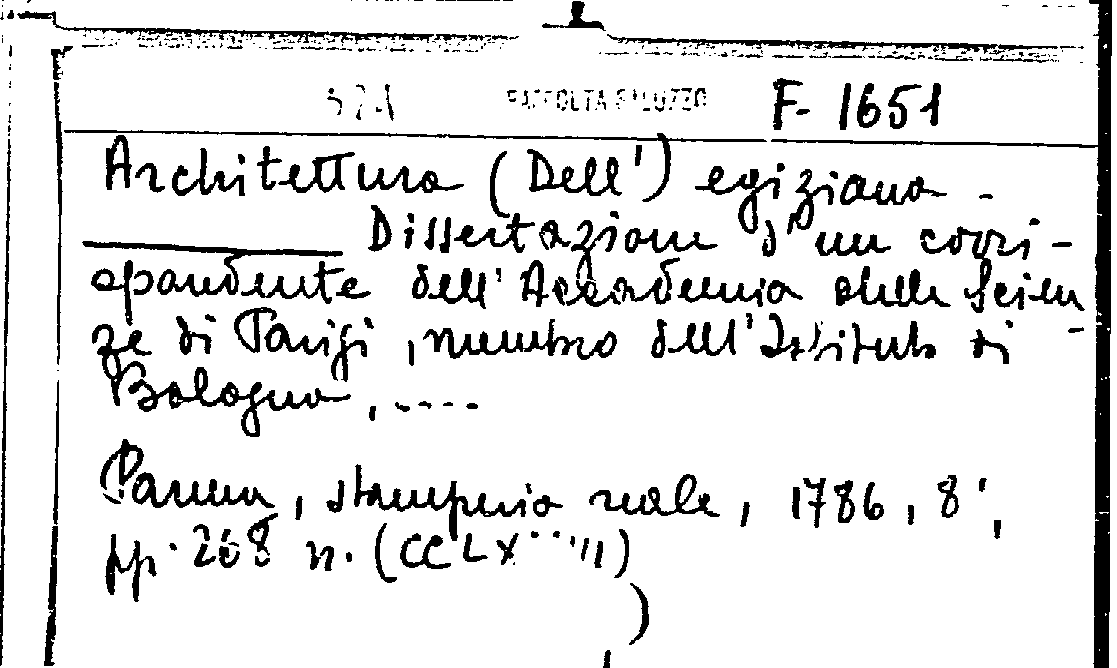 52A RACCOLTA SALUZZO F. 1651
Architettura (Dell') egiziana -
Dissertazione d'un corri-
spondente dell'Accademia delle Scien
ze di Parigi, membro dell'Istituto di
Bologna, ----
Parma, stamperia reale, 1786, 8°,
pp. 268 n. (CCLX